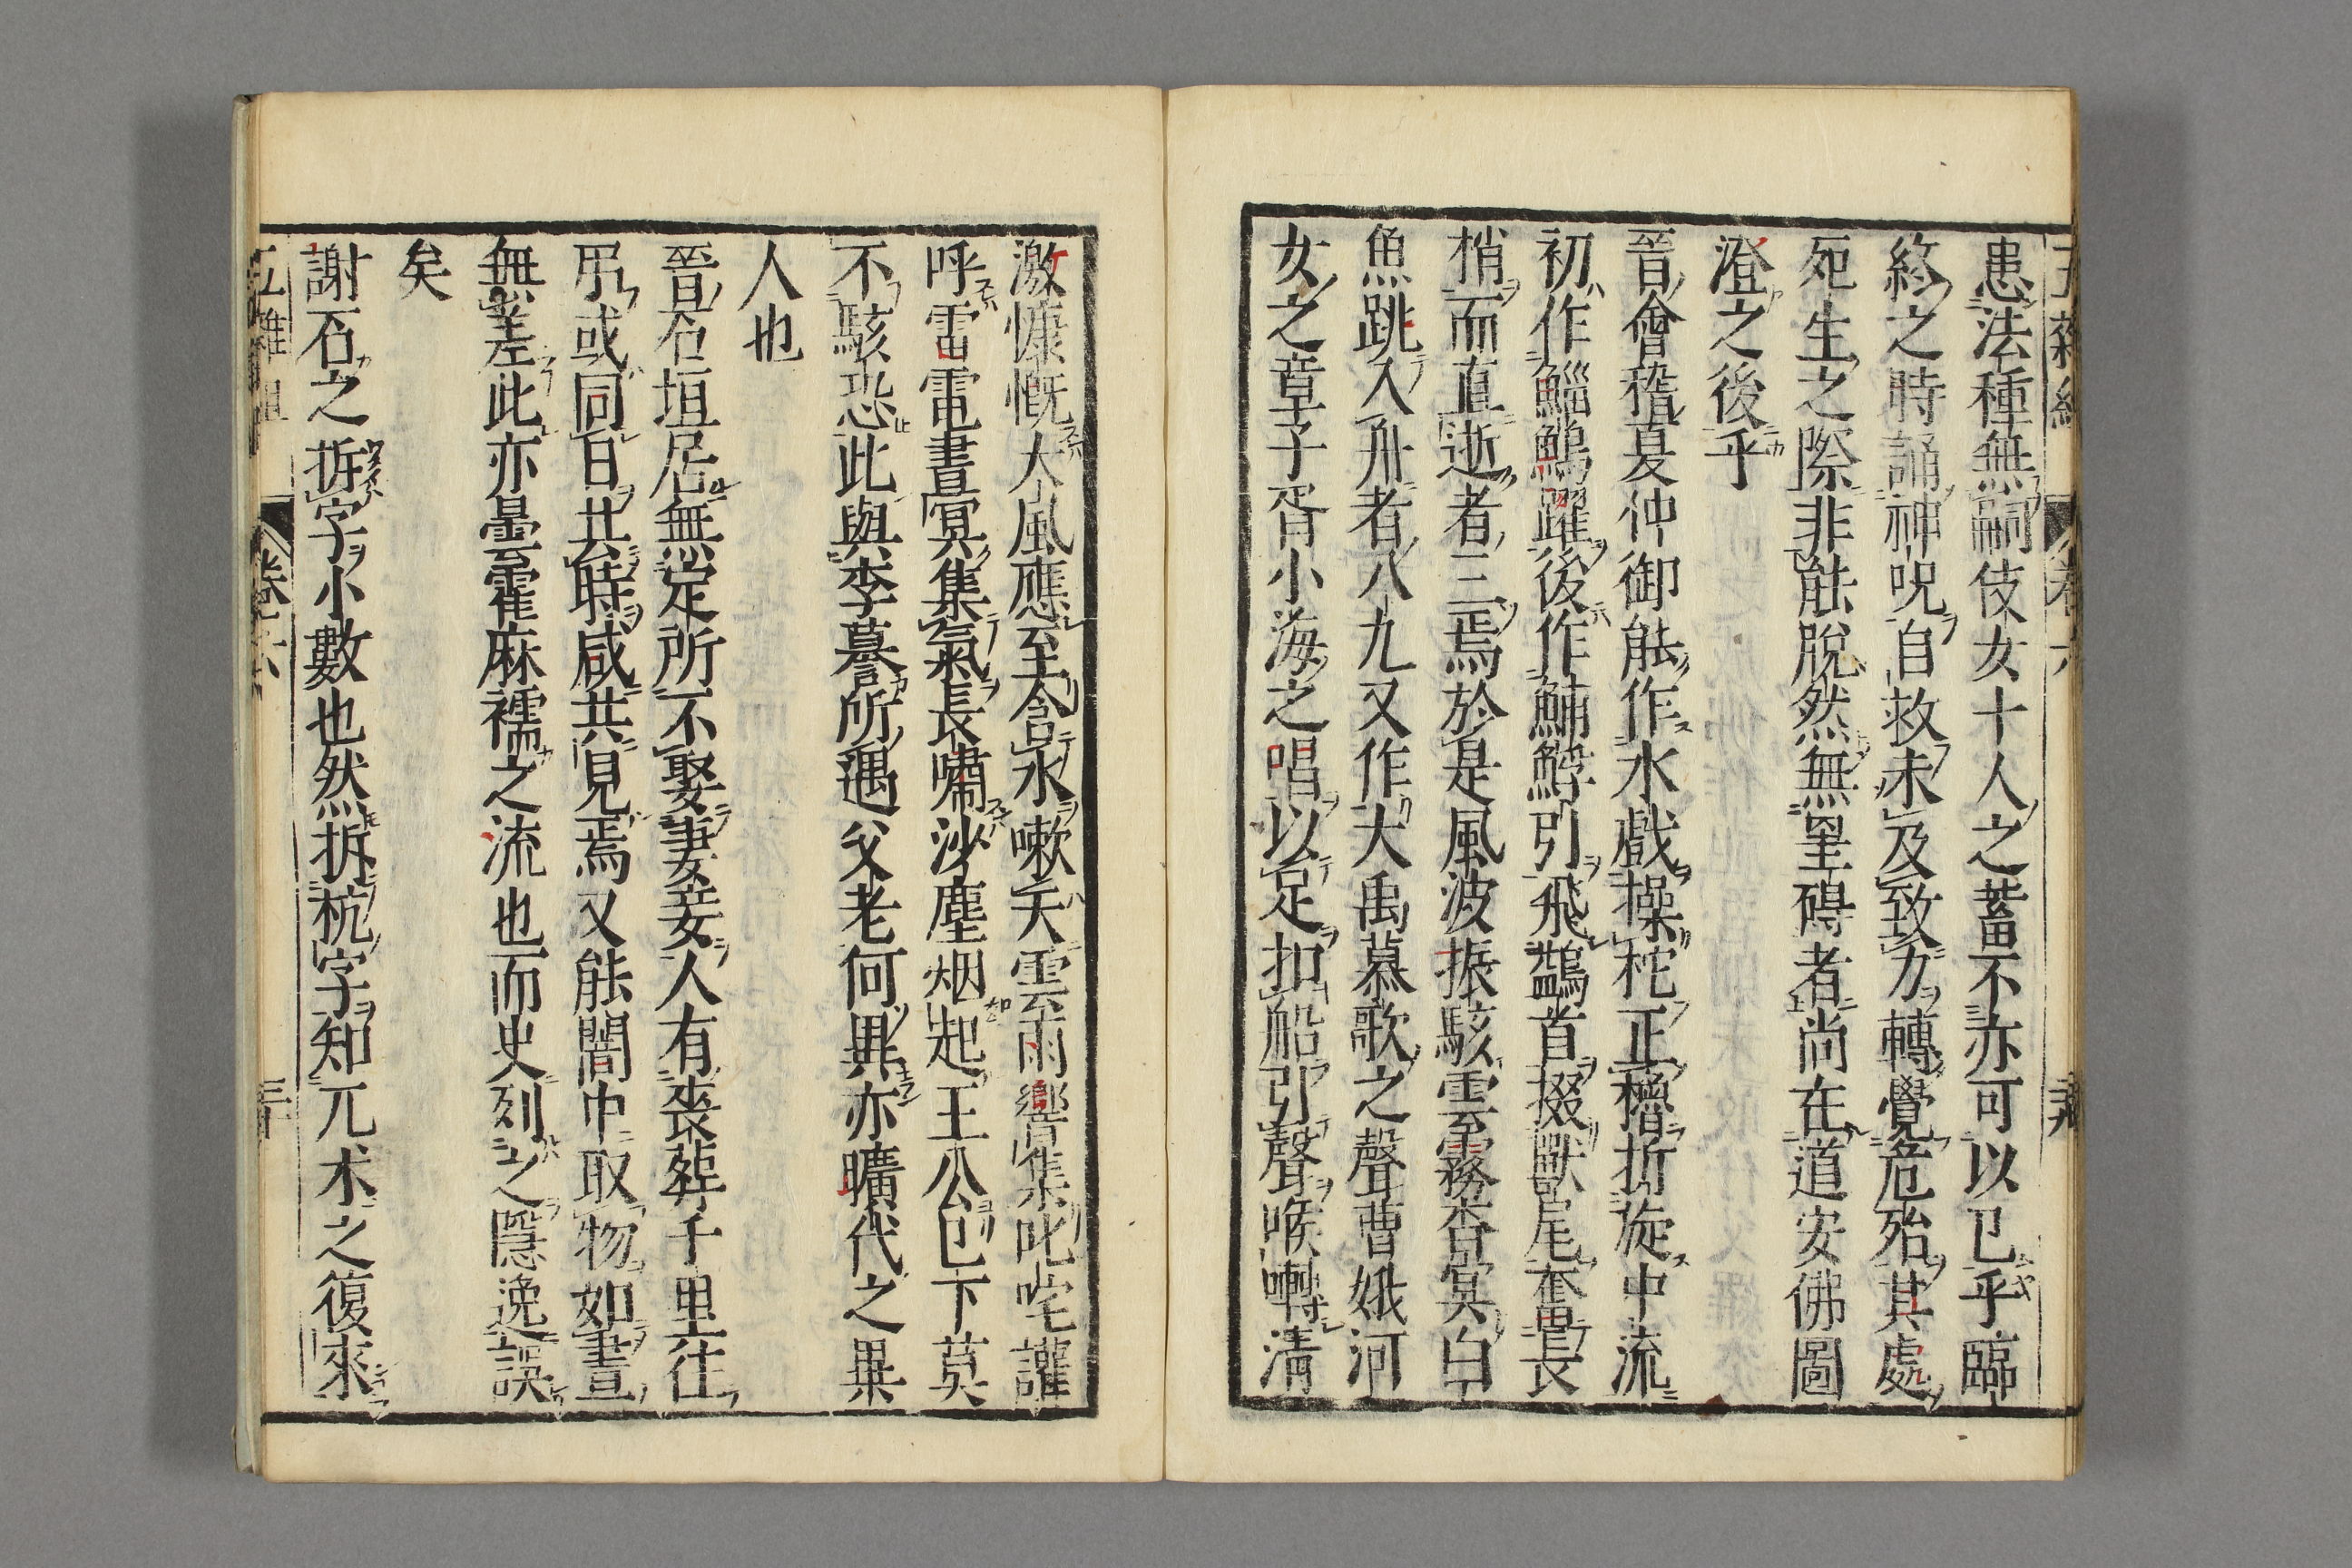 患法種無嗣伎女十人之蓄不亦可以已乎臨
終之時誦神呪自救未及致力轉覺危殆其處
死生之際非能脫然無罣碍者尚在道安佛圖
澄之後乎
晉會稽夏仲御能作水戲操柁正櫓折旋中流
初作鯔鷠躍後作鯆䱐引飛鷁首掇獸尾奮長
梢而直逝者三焉於是風波振駭雲霧杳冥白
魚跳入舟者八九又作大禹慕歌之聲曹娥河
女之章子胥小海之唱以足扣船引聲喉囀清
激慷慨大風應至含水嗽天雲雨響集叱咤讙
呼雷電晝冥集氣長嘯沙塵烟起王公已下莫
不駭恐此與李謩所遇父老何異亦曠代之畢
人也
晉石垣居無定所不娶妻妾人有喪葬千里往
吊或同日共時咸共見焉又能闇中取物如晝
無差此亦曇霍麻襦之流也而史列之隱逸誤
矣
謝石之拆字小數也然拆杭字知兀朮之復來
五雜組 卷六 三十